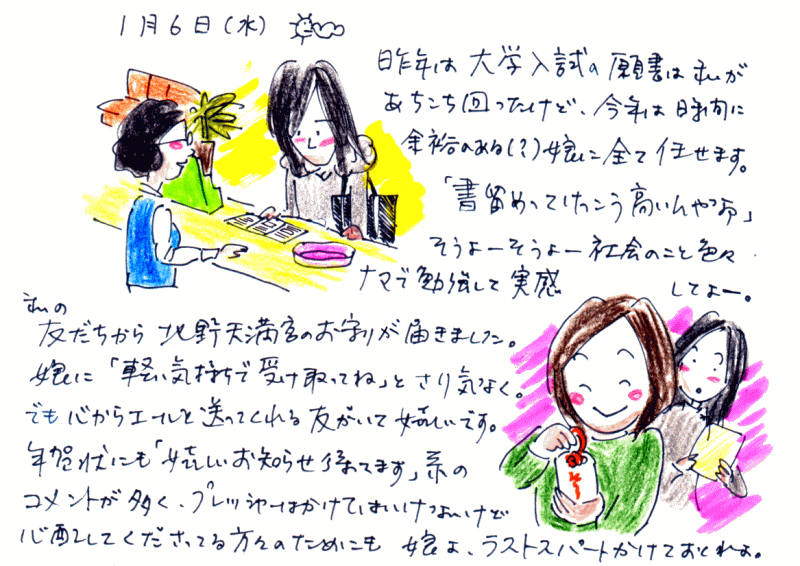 1月6日(水)
昨年は大学入試の願書は私が
あちこち回ったけど、今年は時間に
余裕のある(?)娘に全て任せます。
「書留めっていけっこう高いんやつ」
そうよーそうよー社会のこと色々
ナマで勉強して実感してよー。
私の
友だちから北野天満宮のお守りが届きました。
娘に「軽い気持ちで受け取ってね」とさり気なく。
でも心からエールを送ってくれる友がいて嬉しいです。
年賀状にも「嬉しいお知らせ待ってます」系の
コメントが多く、プレッシャーはかけてはいけないけど
心配してくださってる方々のためにも 娘よ、ラストスパートかけておくれよ。